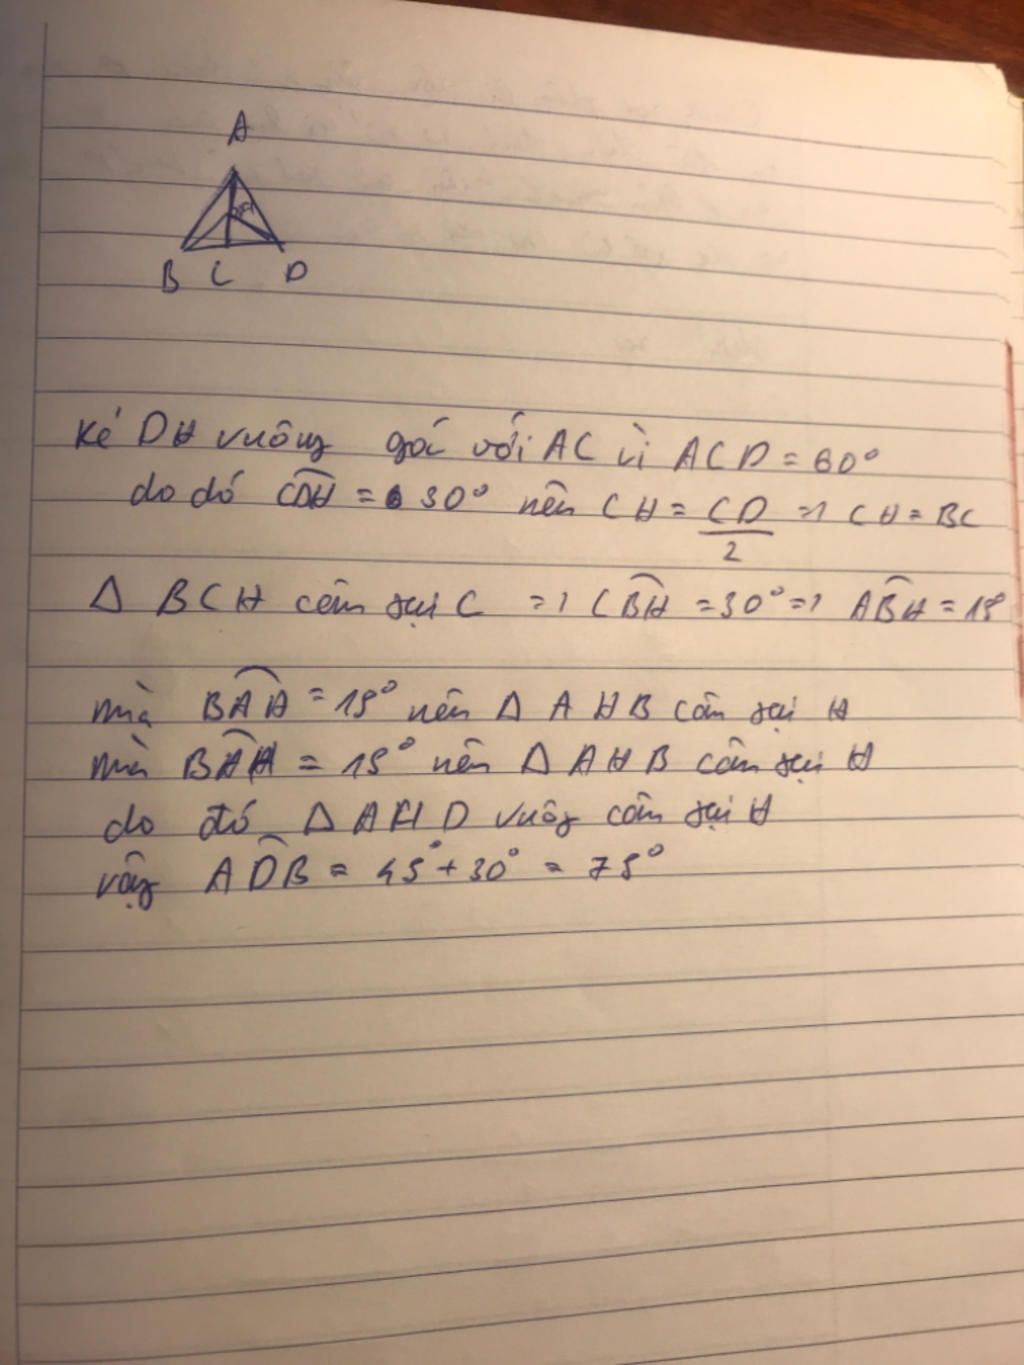 A
B C D
Kẻ DH vuông góc với AC vì ACD = 60°
do đó CDH = 30° nên CH = CD/2 => CH = BC
Δ BCH cân tại C => CBH = 30° => ABH = 15°
mà BAH = 15° nên Δ AHB cân tại H
mà BAH = 15° nên Δ AHB cân tại H
do đó Δ AHD vuông cân tại H
vậy ADB = 45° + 30° = 75°